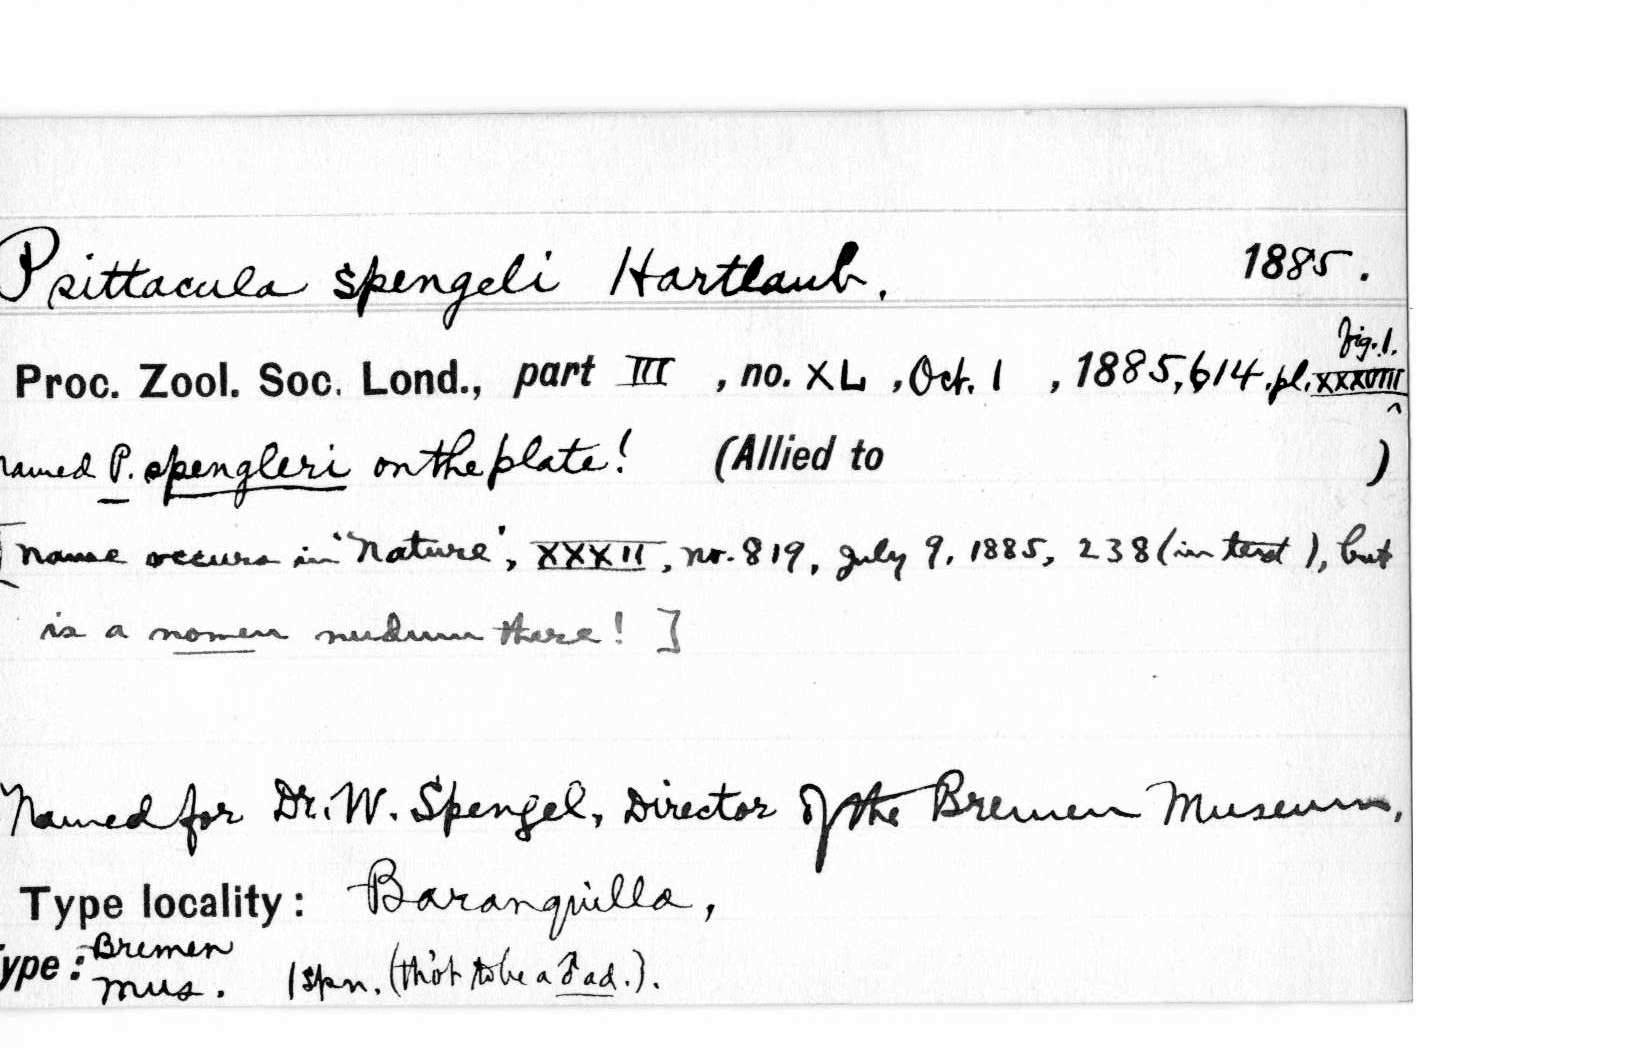 Psittacula spengeli Hartlaub. 1885.
fig. 1.
Proc. Zool. Soc. Lond., part III, no. XL, Oct. 1, 1885, 614. pl. XXXVIII ^
named P. spengleri on the plate! (Allied to )
[name occurs in 'Nature', XXXII, no. 819, July 9, 1885, 238 (in text), but
is a nomen nudum there! ]
Named for Dr. W. Spengel, Director of the Bremen Museum.
Type locality: Baranquilla,
Type: Bremen
Mus. 1 spn. (tho't to be a ♂ ad.).